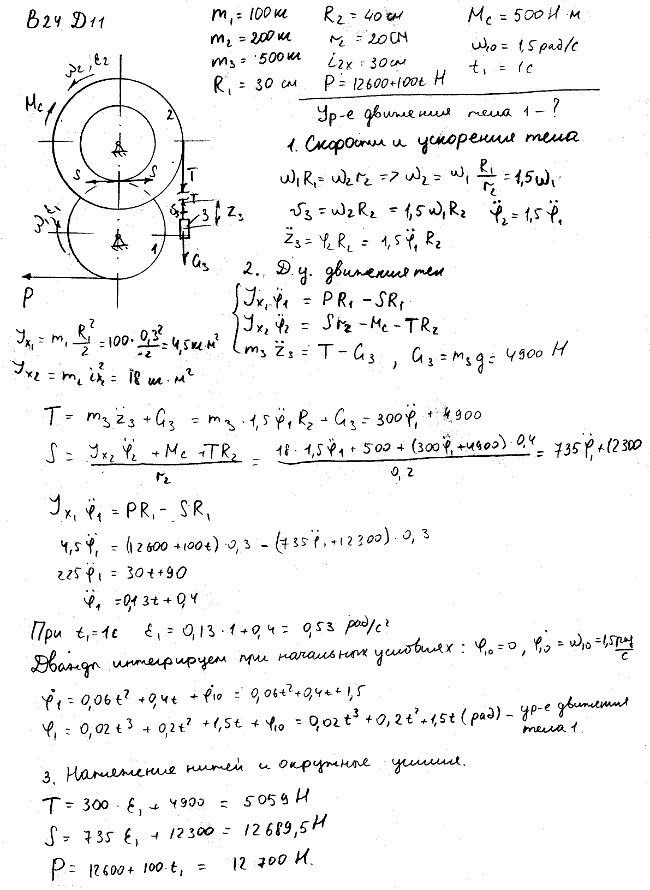 В24 Д11
m₁ = 100 кг   R₂ = 40 см   Mc = 500 Н·м
m₂ = 200 кг   r₂ = 20 см   ω₁₀ = 1,5 рад/с
m₃ = 500 кг   i₂ₓ = 30 см   t₁ = 1с
R₁ = 30 см   P = 12600+100t Н
Ур-е движения тела 1 - ?
1. Скорости и ускорения тела
ω₁R₁ = ω₂r₂ => ω₂ = ω₁ R₁/r₂ = 1,5ω₁
v₃ = ω₂R₂ = 1,5ω₁R₂   φ̈₂ = 1,5φ̈₁
z̈₃ = φ̈₂R₂ = 1,5φ̈₁R₂
ω₂, ε₂
Mc
2
S   S
T
T
v₃   3   z₃
ω₁ ε₁
1
G₃
P
2. Д.у. движения тел
Jx₁ φ̈₁ = PR₁ - SR₁
Jx₂ φ̈₂ = Sr₂ - Mc - TR₂
m₃ z̈₃ = T - G₃ , G₃ = m₃g = 4900 Н
Jx₁ = m₁ R₁²/2 = 100·0,3²/2 = 4,5 кг·м²
Jx₂ = m₂ i²ₓ₂ = 18 кг·м²
T = m₃z̈₃ + G₃ = m₃·1,5φ̈₁R₂ + G₃ = 300φ̈₁ + 4900
S = (Jx₂ φ̈₂ + Mc + TR₂)/r₂ = (18·1,5φ̈₁ + 500 + (300φ̈₁+4900)·0,4)/0,2 = 735φ̈₁+12300
Jx₁ φ̈₁ = PR₁ - SR₁
4,5φ̈₁ = (12600+100t)·0,3 - (735φ̈₁+12300)·0,3
225φ̈₁ = 30t+90
φ̈₁ = 0,13t+0,4
При t₁=1с   ε₁ = 0,13·1+0,4 = 0,53 рад/с²
Дважды интегрируем при начальных условиях: φ₁₀=0, φ̇₁₀ = ω₁₀=1,5 рад/с
φ̇₁ = 0,06t² + 0,4t + φ̇₁₀ = 0,06t²+0,4t+1,5
φ₁ = 0,02t³ + 0,2t² + 1,5t + φ₁₀ = 0,02t³+0,2t²+1,5t (рад) - ур-е движения
тела 1.
3. Натяжение нитей и окружные усилия.
T = 300·ε₁ + 4900 = 5059 Н
S = 735 ε₁ + 12300 = 12689,5 Н
P = 12600+100·t₁ = 12700 Н.